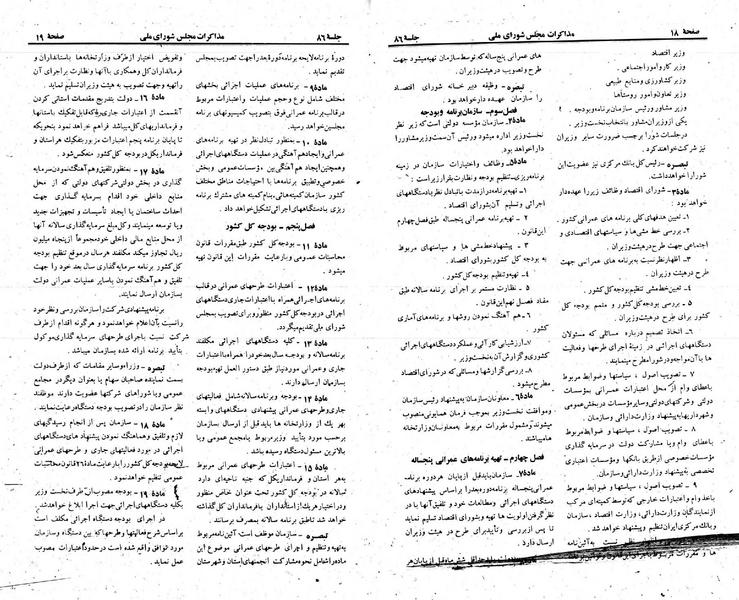 صفحهٔ ۱۸
مذاکرات مجلس شورای ملی
جلسهٔ ۸۶
وزیر اقتصاد
وزیر کار و امور اجتماعی .
وزیر کشاورزی و منابع طبیعی
وزیر تعاون و امور روستاها
وزیر مشاور و رئیس سازمان برنامه و بودجه .
یکی از وزیران مشاور با انتخاب نخست وزیر .
در جلسات شورا بر حسب ضرورت سایر وزیران
نیز شرکت خواهند کرد .
تبصره - رئیس کل بانک مرکزی نیز عضویت این
شورا را خواهد داشت .
ماده۳ - شورای اقتصاد وظائف زیر را عهده دار
خواهد بود .
۱ - تعیین هدفهای کلی برنامه های عمرانی کشور .
۲ - بررسی خط مشی ها و سیاستهای اقتصادی و
اجتماعی جهت طرح در هیئت وزیران .
۳ - اظهار نظر نسبت به برنامه های عمرانی جهت
طرح در هیئت وزیران .
۴ - تعیین خط مشی تنظیم بودجه کل کشور .
۵ - بررسی بودجه کل کشور و متمم بودجه کل
کشور برای طرح در هیئت وزیران .
۶ - اتخاذ تصمیم درباره مسائلی که مسئولان
دستگاههای اجرائی در زمینهٔ اجرای طرحها و فعالیت
ها با آن مواجه و در شورا مطرح مینمایند .
۷ - تصویب اصول ، سیاستها و ضوابط مربوط
باعطای وام از محل اعتبارات عمرانی بمؤسسات
دولتی و شرکتهای دولتی و سایر مؤسسات بخش عمومی
و شهرداریها به پیشنهاد وزارت دارائی و سازمان .
۸ - تصویب اصول ، سیاستها و ضوابط مربوط
باعطای وام و یا مشارکت دولت در سرمایه گذاری
مؤسسات خصوصی از طریق بانکها و مؤسسات اعتباری
تخصصی به پیشنهاد وزارت دارائی و سازمان .
۹ - تصویب اصول ، سیاستها و ضوابط مربوط
باخذ وام و اعتبارات خارجی که توسط کمیته ای مرکب
از نمایندگان وزارت دارائی، وزارت اقتصاد ، سازمان
و بانک مرکزی ایران تنظیم و پیشنهاد خواهد شد .
های عمرانی پنج ساله که توسط سازمان تهیه میشود جهت
طرح و تصویب در هیئت وزیران .
تبصره - وظیفه دبیرخانه شورای اقتصاد
را سازمان عهده دار خواهد بود .
فصل سوم - سازمان برنامه و بودجه
ماده۴ - سازمان مؤسسه دولتی است که زیر نظر
نخست وزیر اداره میشود و رئیس آن سمت وزیر مشاور را
دارا خواهد بود .
ماده۵ - وظائف و اختیارات سازمان در زمینه
برنامه ریزی ، تنظیم بودجه و نظارت بقرار زیر است :
۱ - تهیه برنامه دراز مدت با تبادل نظر با دستگاههای
اجرائی و تسلیم آن بشورای اقتصاد .
۲ - تهیه برنامه عمرانی پنجساله طبق فصل چهارم
این قانون .
۳ - پیشنهاد خط مشی ها و سیاستهای مربوط
به بودجه کل کشور بشورای اقتصاد .
۴ - تهیه و تنظیم بودجه کل کشور .
۵ - نظارت مستمر بر اجرای برنامه سالانه طبق
مفاد فصل نهم این قانون .
۶ - هم آهنگ نمودن روشها و برنامه های آماری
کشور .
۷ - ارزشیابی کارائی و عملکرد دستگاههای اجرائی
کشوری و گزارش آن به نخست وزیر .
۸ - بررسی گزارشها و مسائلی که در شورای اقتصاد
مطرح میشود .
ماده۶ - معاونان سازمان به پیشنهاد رئیس سازمان
و موافقت نخست وزیر بموجب فرمان همایونی منصوب
میشوند و مشمول مقررات مربوط به معاونان وزارتخانه
ها میباشند .
فصل چهارم - تهیه برنامه های عمرانی پنجساله
ماده۷ - سازمان باید قبل از پایان هر دوره برنامه
عمرانی پنجساله برنامه دوره بعد را بر اساس پیشنهادهای
دستگاههای اجرائی و مطالعات خود و تلفیق آنها با در
نظر گرفتن اولویت ها تهیه و بشورای اقتصاد تسلیم نماید
تا پس از بررسی و تأیید برای طرح در هیئت وزیران
ارسال دارد .
صفحهٔ ۱۹
مذاکرات مجلس شورای ملی
جلسهٔ ۸۶
دورهٔ برنامه لایحه برنامه دوره بعد را جهت تصویب بمجلس
تقدیم نماید .
ماده۹ - برنامه های عملیات اجرائی بخشهای
مختلف شامل نوع و حجم عملیات و اعتبارات مربوط
در قالب برنامه عمرانی فوق بتصویب کمیسیونهای برنامه
مجلسین خواهد رسید .
ماده ۱۰ - بمنظور تبادل نظر در تهیه برنامه های
عمرانی و ایجاد هم آهنگی در عملیات دستگاههای اجرائی
و همچنین ایجاد هم آهنگی بین مؤسسات عمومی و بخش
خصوصی و تطبیق برنامه ها با احتیاجات مناطق مختلف
کشور سازمان کمیته هائی بنام کمیته های مشترک برنامه
ریزی با دستگاههای اجرائی تشکیل خواهد داد .
فصل پنجم - بودجه کل کشور
ماده ۱۱ - بودجه کل کشور طبق مقررات قانون
محاسبات عمومی و با رعایت مقررات این قانون تهیه
میشود .
ماده۱۲ - اعتبارات طرحهای عمرانی برای
برنامه های اجرائی همراه با اعتبارات جاری دستگاههای
اجرائی در بودجه کل کشور منظور و برای تصویب بمجلس
شورای ملی تقدیم میگردد .
ماده ۱۳ - کلیه دستگاههای اجرائی مکلفند
برنامه سالانه و بودجه سال بعد خود را همراه با اعتبارات
جاری و عمرانی مورد نیاز طبق دستور العمل تهیه بودجه
بسازمان ارسال دارند .
ماده ۱۴ - بودجه و برنامه سالانه شامل فعالیتهای
جاری و طرحهای عمرانی پیشنهادی دستگاههای وابسته
بهر یک از وزارتخانه ها باید قبل از ارسال بسازمان
برحسب مورد بتأیید وزیر مربوط یا مجمع عمومی و یا
بالاترین مسئول دستگاه رسیده باشد .
ماده ۱۵ - اعتبارات طرحهای عمرانی مربوط
بهر استان و فرمانداریکل که جنبه ناحیه ای دارد
سالانه در بودجه کل کشور تحت عنوان خاص منظور
و در اختیار هر یک از استانداران یا فرمانداران کل گذاشته
خواهد شد تا طبق برنامه سالانه بمصرف برسانند .
تبصره - سازمان موظف است آئین نامه مربوط
به تهیه و تنظیم و اجرای طرحهای عمرانی موضوع این
ماده را شامل نحوه مشارکت انجمنهای استان و شهرستان
و تفویض اختیار از طرف وزارتخانه ها باستانداران و
فرمانداران کل و همکاری با آنها و نظارت بر اجرای آن
را تهیه و جهت تصویب به هیئت وزیران تسلیم نماید .
ماده ۱۶ - دولت بتدریج مقدمات استانی کردن
آنقسمت از اعتبارات جاری را که قابل تفکیک باستانها
و فرمانداریهای کل میباشد فراهم خواهد نمود بنحویکه
تا پایان برنامه پنجم اعتبارات مزبور بتفکیک هر استان و
فرمانداریکل در بودجه کل کشور منعکس شود .
ماده ۱۷ - بمنظور تلفیق و هم آهنگ نمودن سرمایه
گذاری در بخش دولتی شرکتهای دولتی که از محل
منابع داخلی خود اقدام بسرمایه گذاری جهت
احداث ساختمان یا ایجاد تأسیسات و تجهیزات جدید
و یا توسعه مینمایند و کل مبلغ سرمایه گذاری سالانه آنها
از محل منابع مالی داخلی خود مجموعاً از پنجاه میلیون
ریال تجاوز میکند مکلفند هر سال در موقع تنظیم بودجه
کل کشور برنامه سرمایه گذاری سال بعد خود را جهت
تلفیق و هم آهنگ نمودن با سایر عملیات عمرانی دولت
بسازمان ارسال نمایند .
برنامه پیشنهادی شرکت را سازمان بررسی و نظر خود
را نسبت بآن اعلام خواهد نمود و هر گونه اقدام از طرف
شرکت نسبت باجرای طرحهای سرمایه گذاری موکول
بتأیید برنامه ارائه شده بسازمان میباشد .
تبصره - وزراء و سایر مقاماتی که از طرف دولت
بسمت نماینده صاحبان سهام یا بعنوان دیگر در مجامع
عمومی و یا شوراهای شرکتها عضویت دارند موظفند
نظر سازمان را در تصویب بودجه دستگاه رعایت نمایند .
ماده ۱۸ - سازمان پس از انجام رسیدگیهای
لازم و تلفیق و هماهنگ نمودن پیشنهادهای دستگاههای
اجرائی در مورد فعالیتهای جاری و طرحهای عمرانی
بودجه کل کشور را با رعایت ماده ۲۶ قانون محاسبات
عمومی تنظیم خواهد نمود .
ماده ۱۹ - بودجه مصوب از طرف نخست وزیر
بکلیه دستگاههای اجرائی جهت اجرا ابلاغ خواهد شد .
در اجرای بودجه دستگاه اجرائی مکلف است
بر اساس شرح فعالیتها و طرحها که بین دستگاه و سازمان
مورد توافق واقع شده است در حدود اعتبارات مصوب
عمل نماید .